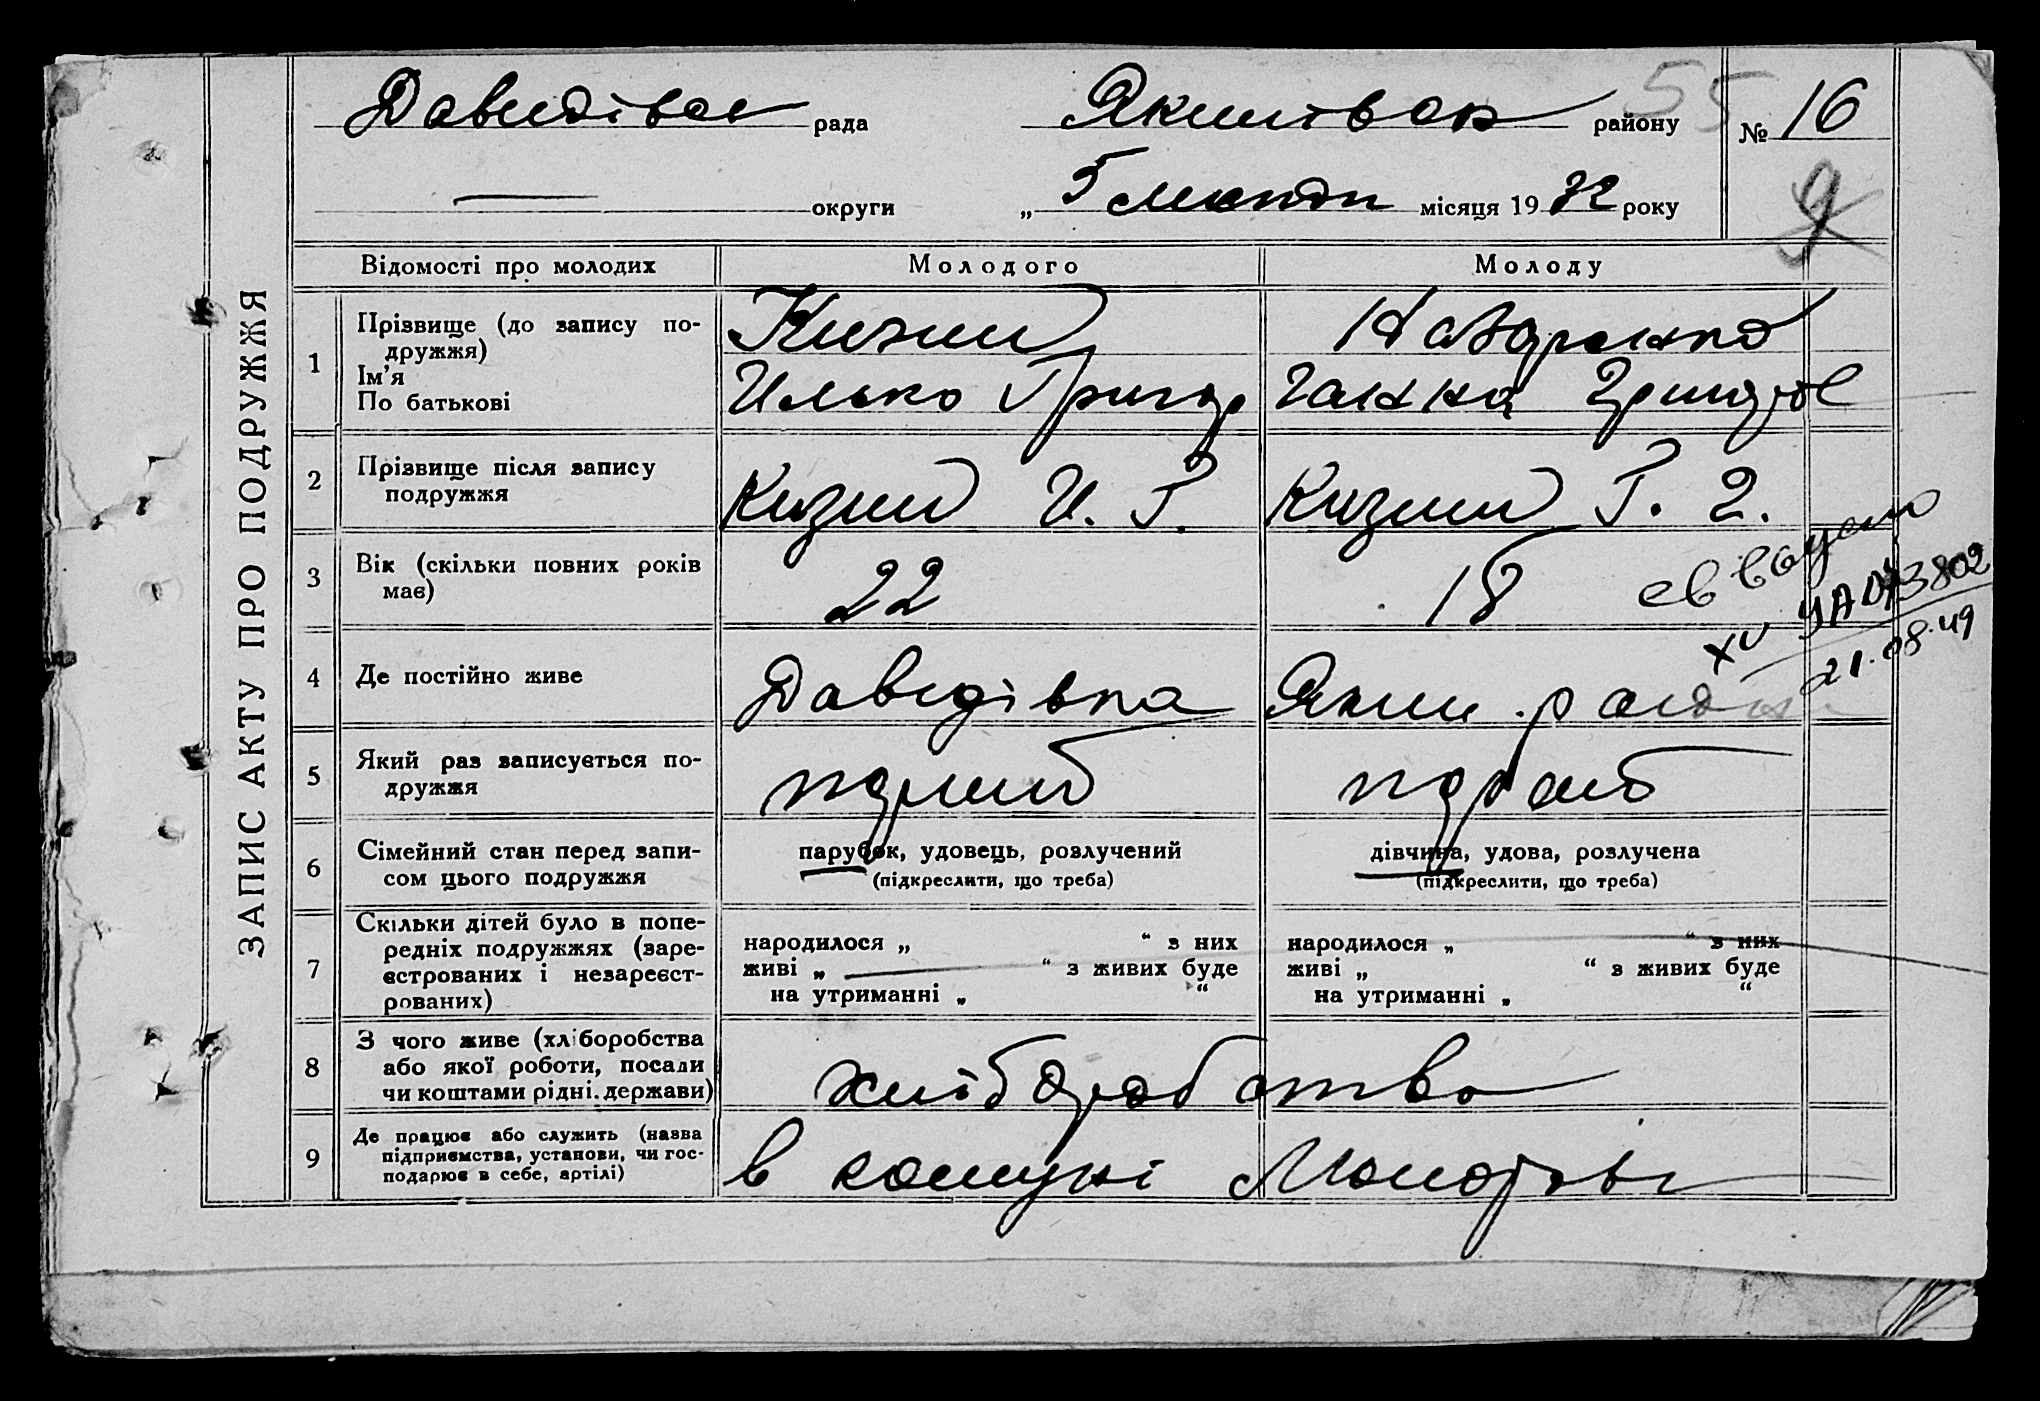 ЗАПИС АКТУ ПРО ПОДРУЖЖЯ
рада району № 16
55
округи „ 5 місяця 19 32 року
9
Відомості про молодих Молодого Молоду
1 Прізвище (до запису по-
дружжя)
Ім'я
По батькові
Илько Григор Ганна
2 Прізвище після запису
подружжя
Кизим И. Г. Кизим Г. Г.
3 Вік (скільки повних років
має)
22 18
УА 073802
21.08.49
4 Де постійно живе
Давидівка Яким. району
5 Який раз записується по-
дружжя
перший
6 Сімейний стан перед запи-
сом цього подружжя
парубок, удовець, розлучений
(підкреслити, що треба)
дівчина, удова, розлучена
(підкреслити, що треба)
7 Скільки дітей було в попе-
редніх подружжях (заре-
єстрованих і незареєст-
рованих)
народилося „ “ з них
живі „ “ з живих буде
на утриманні „ “
народилося „ “ з них
живі „ “ з живих буде
на утриманні „ “
8 З чого живе (хліборобства
або якої роботи, посади
чи коштами рідні. держави)
хліборобство
9 Де працює або служить (назва
підприємства, установи, чи гос-
подарює в себе, артілі)
в комуні